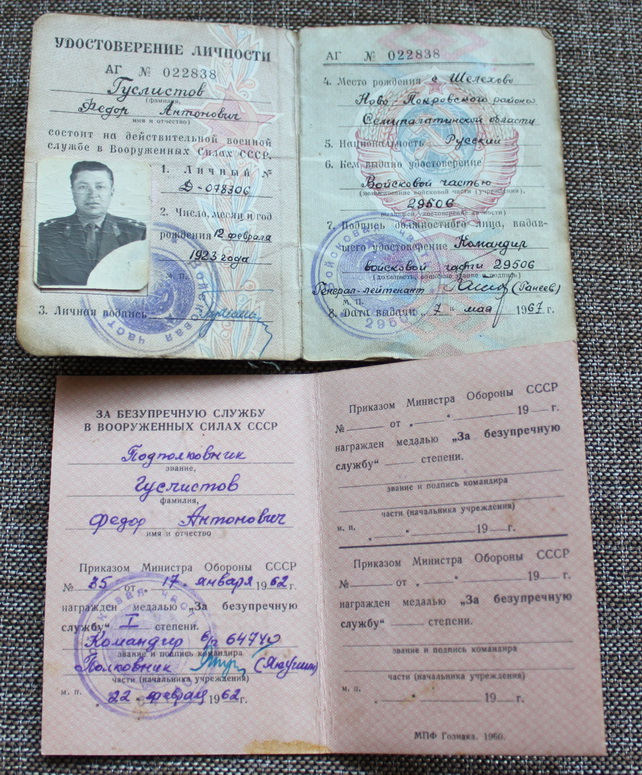 УДОСТОВЕРЕНИЕ ЛИЧНОСТИ
АГ № 022838
Гуслистов
(фамилия,
Федор Антонович
имя и отчество)
состоит на действительной военной
службе в Вооруженных Силах СССР.
1. Личный №
Д-078306
2. Число, месяц и год
рождения 12 февраля
1923 года
М. П.
3. Личная подпись
АГ № 022838
4. Место рождения с. Шелехово
Ново-Покровского района
Семипалатинской области
5. Национальность Русский
6. Кем выдано удостоверение
Войсковой частью
29506
7. Подпись должностного лица, выдав-
шего удостоверение Командир
войсковой части 29506
Генерал-лейтенант (Ранеев)
М. П.
8. Дата выдачи „7" мая 1967 г.
29506
ЗА БЕЗУПРЕЧНУЮ СЛУЖБУ
В ВООРУЖЕННЫХ СИЛАХ СССР
Подполковник
звание,
Гуслистов
фамилия,
Федор Антонович
имя и отчество
Приказом Министра Обороны СССР
№ 35 от 17. января 1962 г.
награжден медалью „За безупречную
службу" I степени.
Командир в/ч 64770
звание и подпись командира
Полковник (Якушин)
части (начальника учреждения)
м. п. „22" февраля 1962 г.
Приказом Министра Обороны СССР
№ от „ " 19 г.
награжден медалью „За безупречную
службу" степени.
звание и подпись командира
части (начальника учреждения)
м. п. „ " 19 г.
Приказом Министра Обороны СССР
№ от „ " 19 г.
награжден медалью „За безупречную
службу" степени.
звание и подпись командира
части (начальника учреждения)
м. п. „ " 19 г.
МПФ Гознака. 1960.